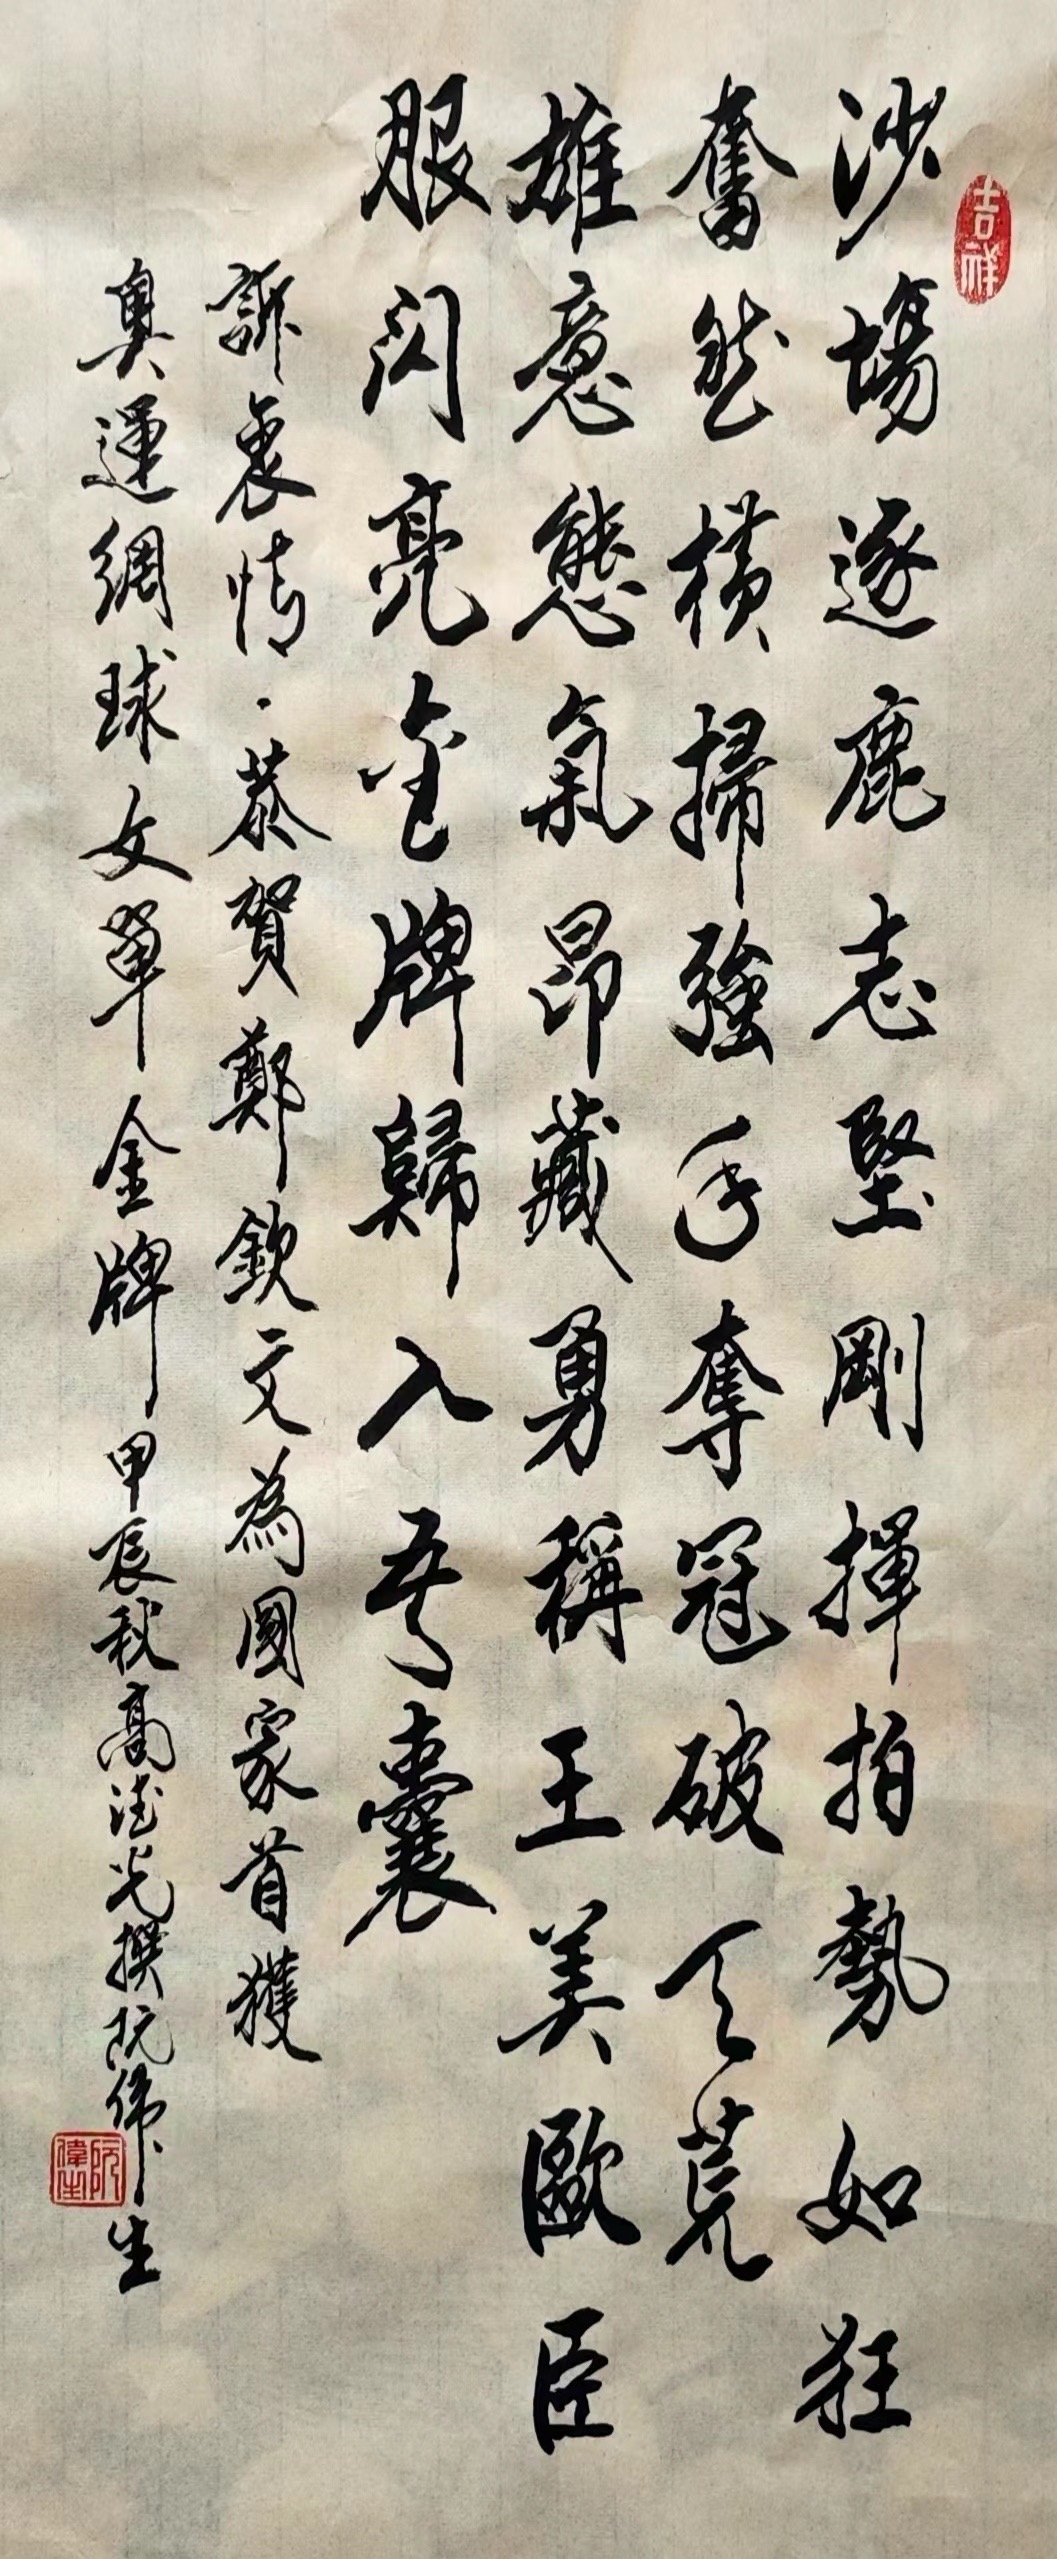 吉祥
沙場逐鹿志堅剛揮拍勢如狂
奮然橫掃強手奪冠破天荒
雄意態氣昂藏勇稱王美歐臣
服閃亮金牌歸入吾囊
訴衷情·恭賀鄭欽文為國家首獲
奧運網球女單金牌甲辰秋高德光撰阮偉生
阮偉生